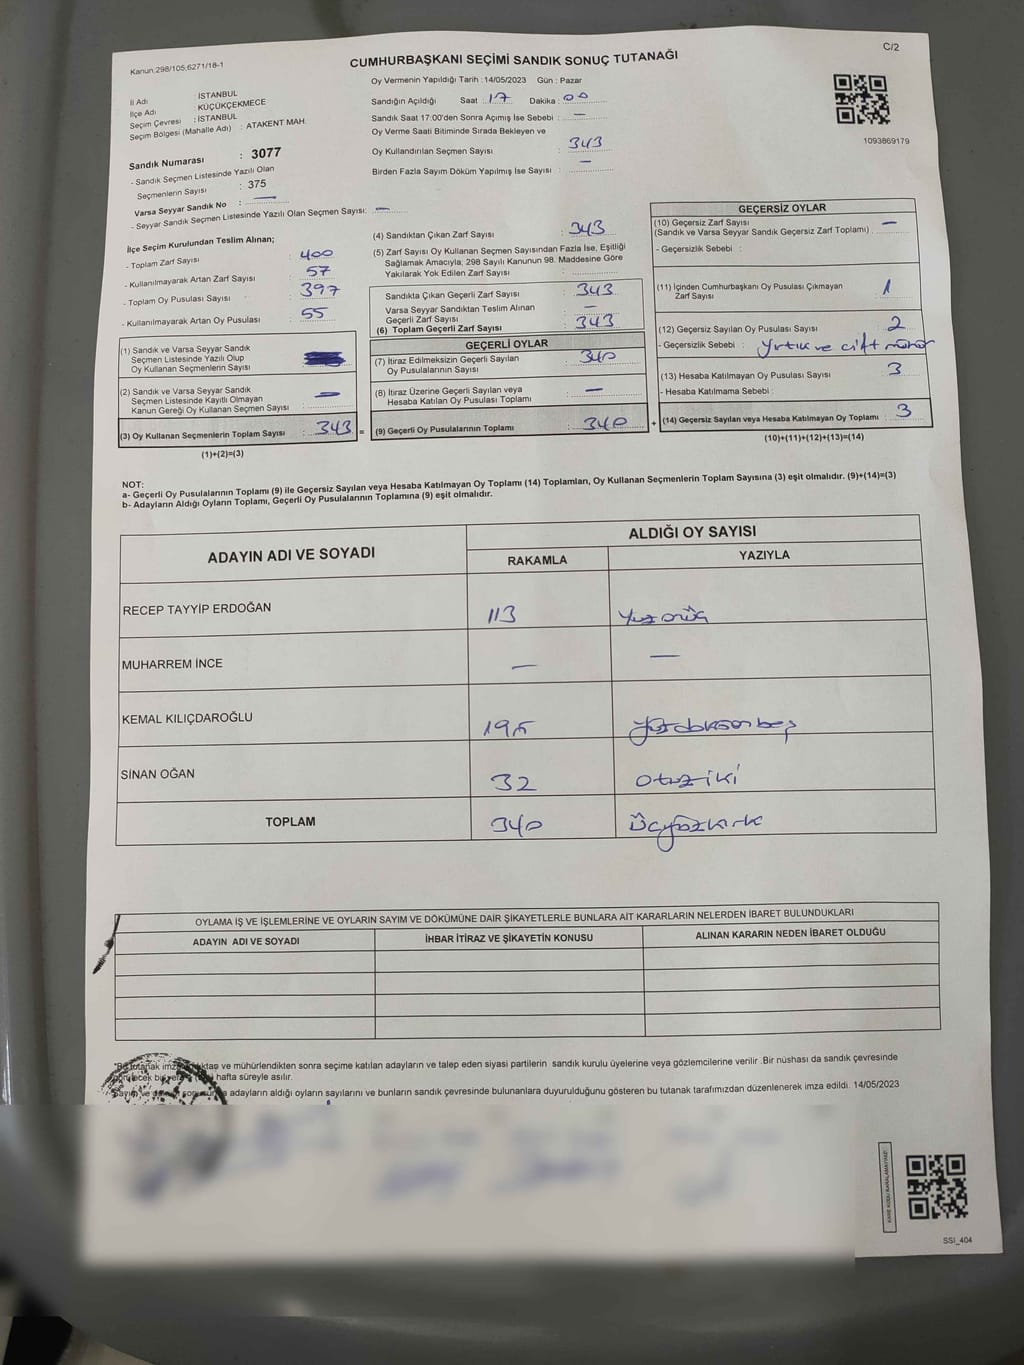 Kanun:298/105,6271/18-1
CUMHURBAŞKANI SEÇİMİ SANDIK SONUÇ TUTANAĞI
C/2
Oy Vermenin Yapıldığı Tarih : 14/05/2023 Gün : Pazar
İl Adı : İSTANBUL
İlçe Adı : KÜÇÜKÇEKMECE
Seçim Çevresi : İSTANBUL
Seçim Bölgesi (Mahalle Adı) : ATAKENT MAH.
Sandığın Açıldığı Saat : 17 Dakika : 00
Sandık Saat 17:00'den Sonra Açımış İse Sebebi : —
Oy Verme Saati Bitiminde Sırada Bekleyen ve
Oy Kullandırılan Seçmen Sayısı : 343
Birden Fazla Sayım Döküm Yapılmış İse Sayısı : —
1093869179
Sandık Numarası : 3077
- Sandık Seçmen Listesinde Yazılı Olan
Seçmenlerin Sayısı : 375
Varsa Seyyar Sandık No : —
- Seyyar Sandık Seçmen Listesinde Yazılı Olan Seçmen Sayısı: —
İlçe Seçim Kurulundan Teslim Alınan;
- Toplam Zarf Sayısı : 400
- Kullanılmayarak Artan Zarf Sayısı : 57
- Toplam Oy Pusulası Sayısı : 397
- Kullanılmayarak Artan Oy Pusulası : 55
(1) Sandık ve Varsa Seyyar Sandık
Seçmen Listesinde Yazılı Olup
Oy Kullanan Seçmenlerin Sayısı :
(2) Sandık ve Varsa Seyyar Sandık
Seçmen Listesinde Kayıtlı Olmayan
Kanun Gereği Oy Kullanan Seçmen Sayısı : —
(3) Oy Kullanan Seçmenlerin Toplam Sayısı : 343 =
(1)+(2)=(3)
(4) Sandıktan Çıkan Zarf Sayısı : 343
(5) Zarf Sayısı Oy Kullanan Seçmen Sayısından Fazla İse, Eşitliği
Sağlamak Amacıyla, 298 Sayılı Kanunun 98. Maddesine Göre
Yakılarak Yok Edilen Zarf Sayısı :
Sandıkta Çıkan Geçerli Zarf Sayısı : 343
Varsa Seyyar Sandıktan Teslim Alınan
Geçerli Zarf Sayısı : —
(6) Toplam Geçerli Zarf Sayısı : 343
GEÇERLİ OYLAR
(7) İtiraz Edilmeksizin Geçerli Sayılan
Oy Pusulalarının Sayısı : 340
(8) İtiraz Üzerine Geçerli Sayılan veya
Hesaba Katılan Oy Pusulası Toplamı : —
(9) Geçerli Oy Pusulalarının Toplamı : 340 +
GEÇERSİZ OYLAR
(10) Geçersiz Zarf Sayısı : —
(Sandık ve Varsa Seyyar Sandık Geçersiz Zarf Toplamı)
- Geçersizlik Sebebi :
(11) İçinden Cumhurbaşkanı Oy Pusulası Çıkmayan
Zarf Sayısı : 1
(12) Geçersiz Sayılan Oy Pusulası Sayısı : 2
- Geçersizlik Sebebi : yırtık ve çift mühür
(13) Hesaba Katılmayan Oy Pusulası Sayısı : 3
- Hesaba Katılmama Sebebi :
(14) Geçersiz Sayılan veya Hesaba Katılmayan Oy Toplamı : 3
(10)+(11)+(12)+(13)=(14)
NOT:
a- Geçerli Oy Pusulalarının Toplamı (9) ile Geçersiz Sayılan veya Hesaba Katılmayan Oy Toplamı (14) Toplamları, Oy Kullanan Seçmenlerin Toplam Sayısına (3) eşit olmalıdır. (9)+(14)=(3)
b- Adayların Aldığı Oyların Toplamı, Geçerli Oy Pusulalarının Toplamına (9) eşit olmalıdır.
ADAYIN ADI VE SOYADI
ALDIĞI OY SAYISI
RAKAMLA YAZIYLA
RECEP TAYYİP ERDOĞAN 113 Yüzonüç
MUHARREM İNCE — —
KEMAL KILIÇDAROĞLU 195 yüzdoksanbeş
SİNAN OĞAN 32 otuziki
TOPLAM 340 Üçyüzkırk
OYLAMA İŞ VE İŞLEMLERİNE VE OYLARIN SAYIM VE DÖKÜMÜNE DAİR ŞİKAYETLERLE BUNLARA AİT KARARLARIN NELERDEN İBARET BULUNDUKLARI
ADAYIN ADI VE SOYADI İHBAR İTİRAZ VE ŞİKAYETİN KONUSU ALINAN KARARIN NEDEN İBARET OLDUĞU
ve mühürlendikten sonra seçime katılan adayların ve talep eden siyasi partilerin sandık kurulu üyelerine veya gözlemcilerine verilir .Bir nüshası da sandık çevresinde
hafta süreyle asılır.
adayların aldığı oyların sayılarını ve bunların sandık çevresinde bulunanlara duyurulduğunu gösteren bu tutanak tarafımızdan düzenlenerek imza edildi. 14/05/2023
KARE KODU KARALAMAYINIZ!
SSI_404